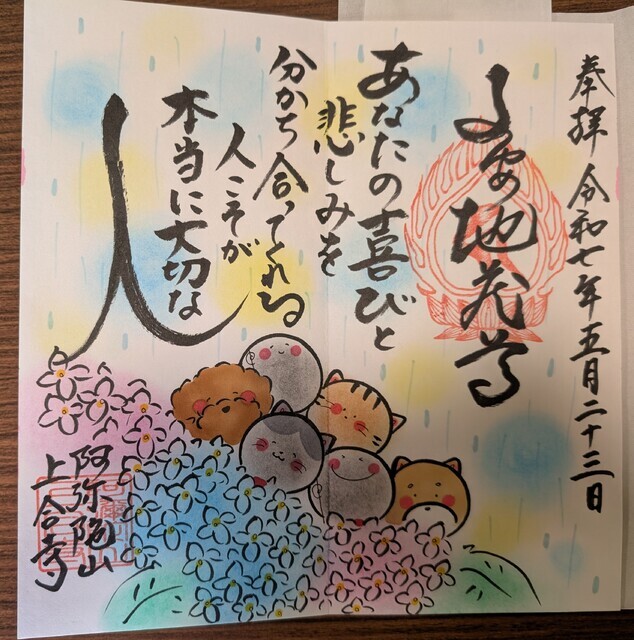 奉拝 令和七年五月二十三日
地蔵尊
あなたの喜びと
悲しみを
分かち合ってくれる
人こそが
本当に大切な
人
阿弥陀山
上合寺